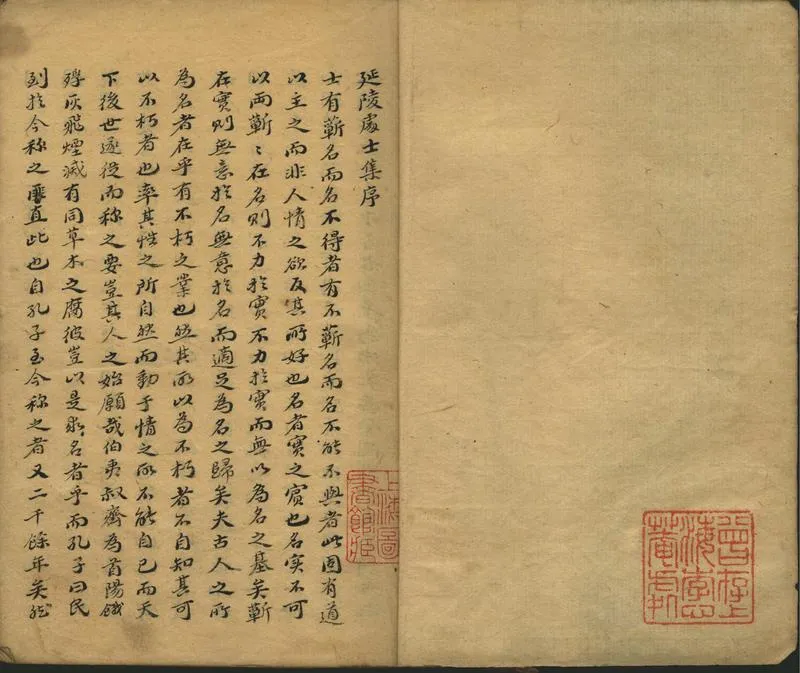 延陵處士集序
士有蘄名而名不得者有不蘄名而名不能不與者此固有道
以主之而非人情之欲反其所好也名者實之賓也名实不可
以兩蘄〻在名則不力於實不力於實而無以為名之基矣蘄
在實則無意於名無意於名而適足為名之歸矣夫古人之所
為名者在乎有不朽之業也然其所以為不朽者不自知其可
以不朽者也率其性之所自然而動乎情之所不能自已而天
下後世遂從而称之要豈其人之始願哉伯夷叔齊為首陽餓
殍灰飛煙滅有同草木之腐彼豈以是求名者乎而孔子曰民
到於今称之匪直此也自孔子至今称之者又二千餘年矣然
上海圖
書館臧
曾存上
海